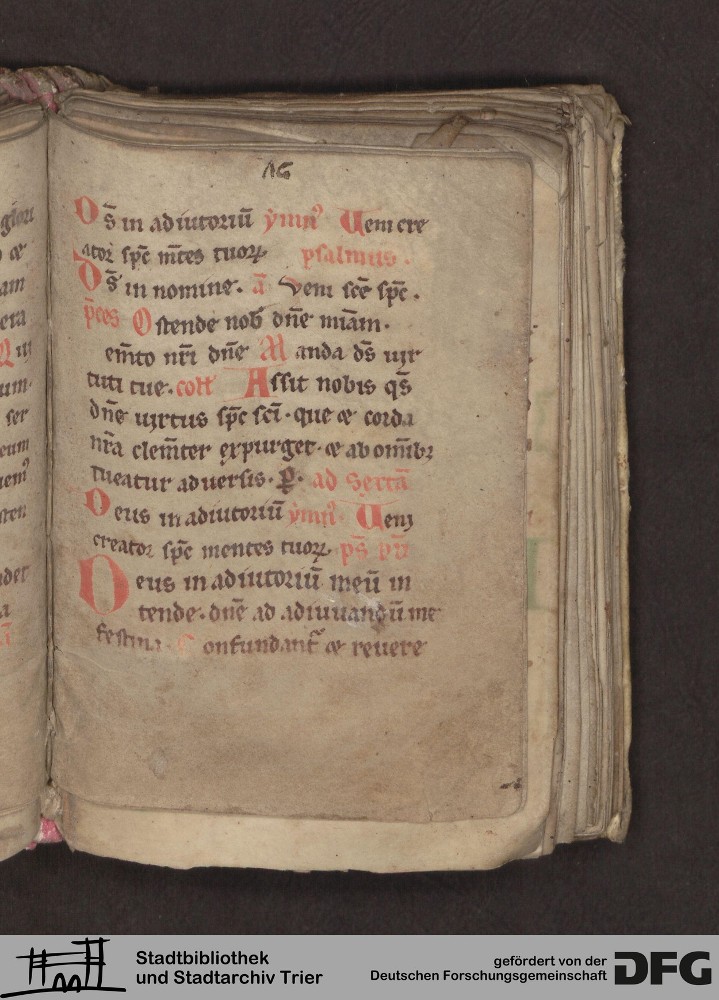 16
Ds̄ in adiutoriū ẏmnꝰ Veni cre
ator sp̄c m̄tes tuoꝝ psalmus.
Ds̄ in nomine. ā Veni sc̄e sp̄c.
p̄ces Ostende nob̄ dn̄e mīam.
em̄to nr̄i dn̄e Manda ds̄ uir
tuti tue. coll̄ Assit nobis qs̄
dn̄e uirtus sp̄c sc̄i. que ⁊ corda
nr̄a clem̄ter expurget. ⁊ ab om̄ibꝫ
tueatur aduersis. P̱. ad Sextā
Deus in adiutoriū ẏmnꝰ Veni
creator sp̄c mentes tuoꝝ. ps̄
Deus in adiutoriū meū in
tende. dn̄e ad adiuuandū me
festina. Confundant᷑ ⁊ reuere
Stadtbibliothek
und Stadtarchiv Trier
gefördert von der
Deutschen Forschungsgemeinschaft
DFG